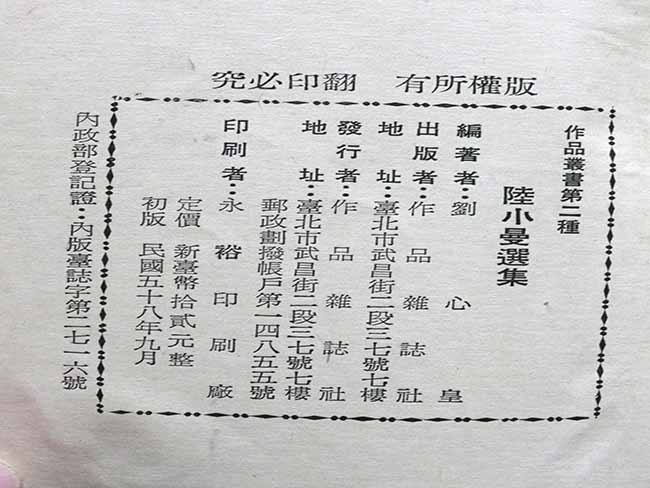 版權所有　翻印必究
作品叢書第二種
陸小曼選集
編著者：劉心皇
出版者：作品雜誌社
地址：臺北市武昌街二段三七號七樓
發行者：作品雜誌社
地址：臺北市武昌街二段三七號七樓
郵政劃撥帳戶第一四八五五號
印刷者：永裕印刷廠
定價　新臺幣拾貳元整
初版　民國五十八年九月
內政部登記證：內版臺誌字第二七一六號